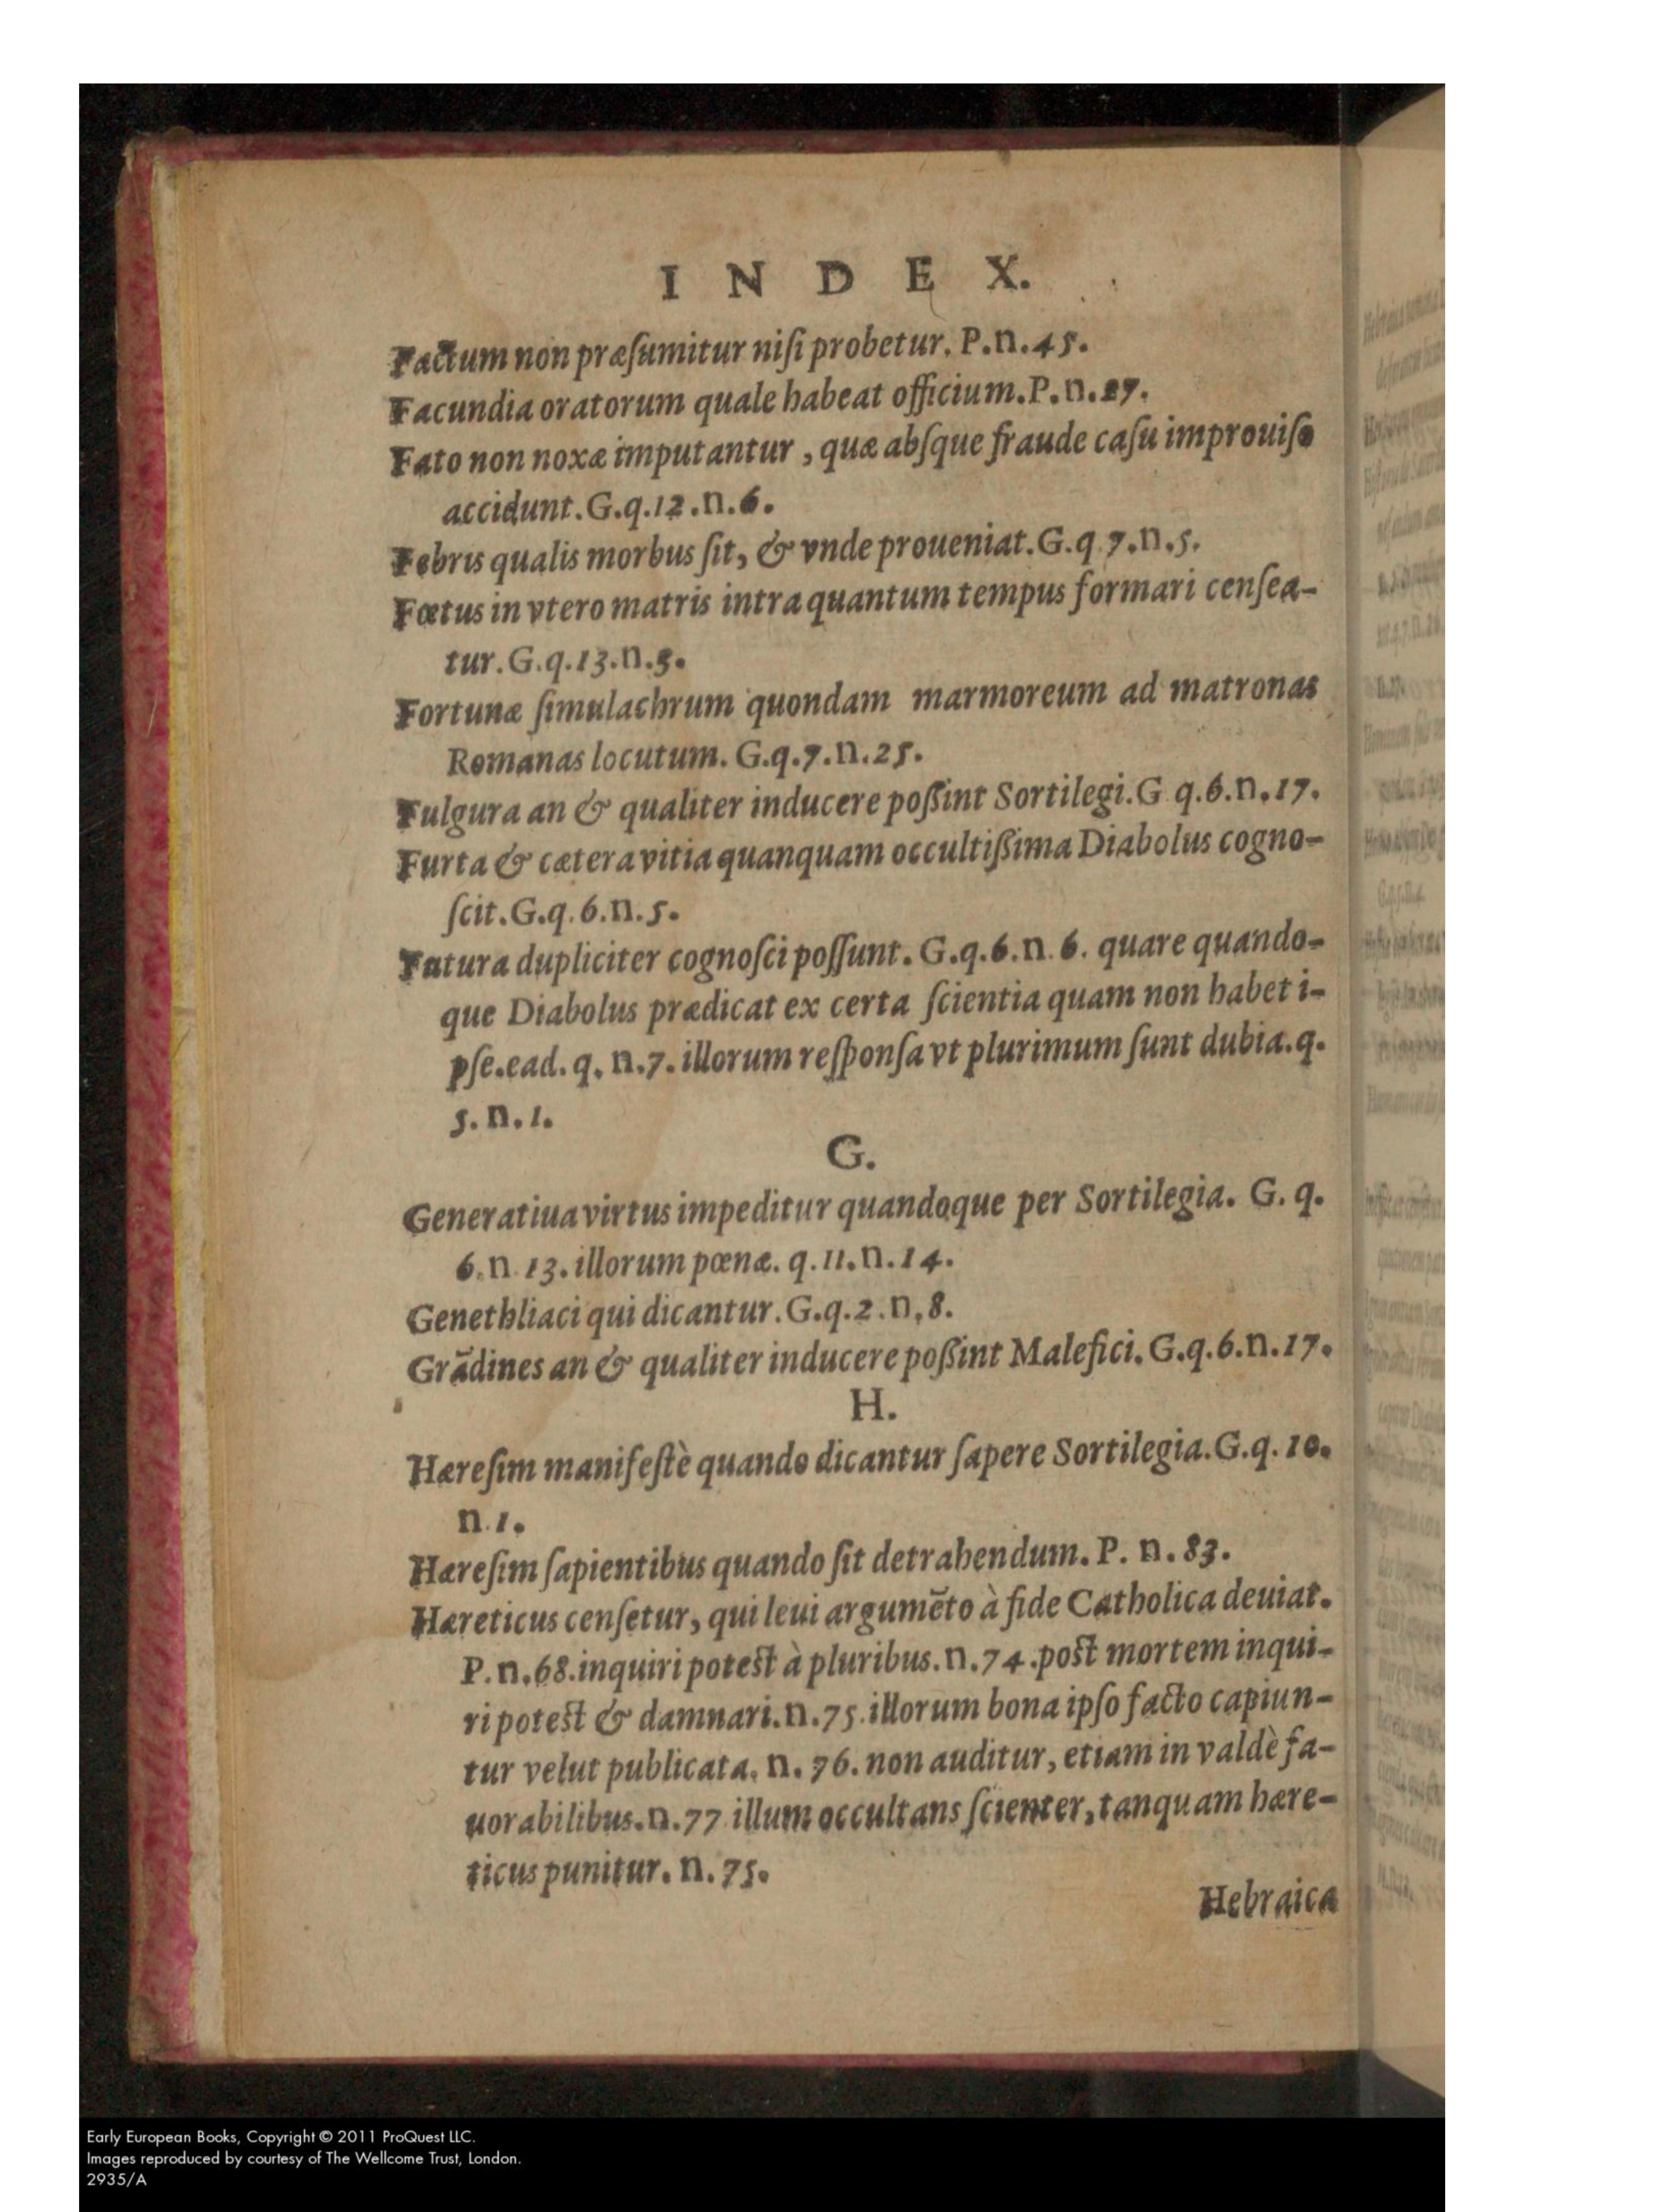 INDEX.
Factum non præſumitur niſi probetur. P.n.45.
Facundia oratorum quale habeat officium.P.n.27.
Fato non noxæ imputantur , quæ abſque fraude caſu improuiſo
accidunt.G.q.12.n.6.
Febris qualis morbus ſit, & vnde proueniat.G.q.7.n.5.
Fœtus in vtero matris intra quantum tempus formari cenſea-
tur.G.q.13.n.3.
Fortunæ ſimulachrum quondam marmoreum ad matronas
Romanas locutum. G.q.7.n.25.
Fulgura an & qualiter inducere poßint Sortilegi.G q.6.n.17.
Furta & cætera vitia quanquam occultißima Diabolus cogno-
ſcit.G.q.6.n.5.
Futura dupliciter cognoſci poſſunt. G.q.6.n.6. quare quando-
que Diabolus prædicat ex certa ſcientia quam non habet i-
pſe.ead. q. n.7. illorum reſponſa vt plurimum ſunt dubia.q.
5. n. 1.
G.
Generatiua virtus impeditur quandoque per Sortilegia. G. q.
6.n.13. illorum pœnæ. q.11.n.14.
Genethliaci qui dicantur.G.q.2.n.8.
Grãdines an & qualiter inducere poßint Malefici.G.q.6.n.17.
H.
Hæreſim manifeſtè quando dicantur ſapere Sortilegia.G.q.10.
n.1.
Hæreſim ſapientibus quando ſit detrahendum. P. n.83.
Hæreticus cenſetur, qui leui argumẽto à fide Catholica deuiat.
P.n.68.inquiri poteſt à pluribus.n.74.poſt mortem inqui-
ri poteſt & damnari.n.75.illorum bona ipſo facto capiun-
tur velut publicata. n. 76. non auditur, etiam in valdè fa-
uorabilibus.n.77 illum occultans ſcienter, tanquam hære-
ticus punitur. n. 75.
Hebraica
Early European Books, Copyright © 2011 ProQuest LLC.
Images reproduced by courtesy of The Wellcome Trust, London.
2935/A